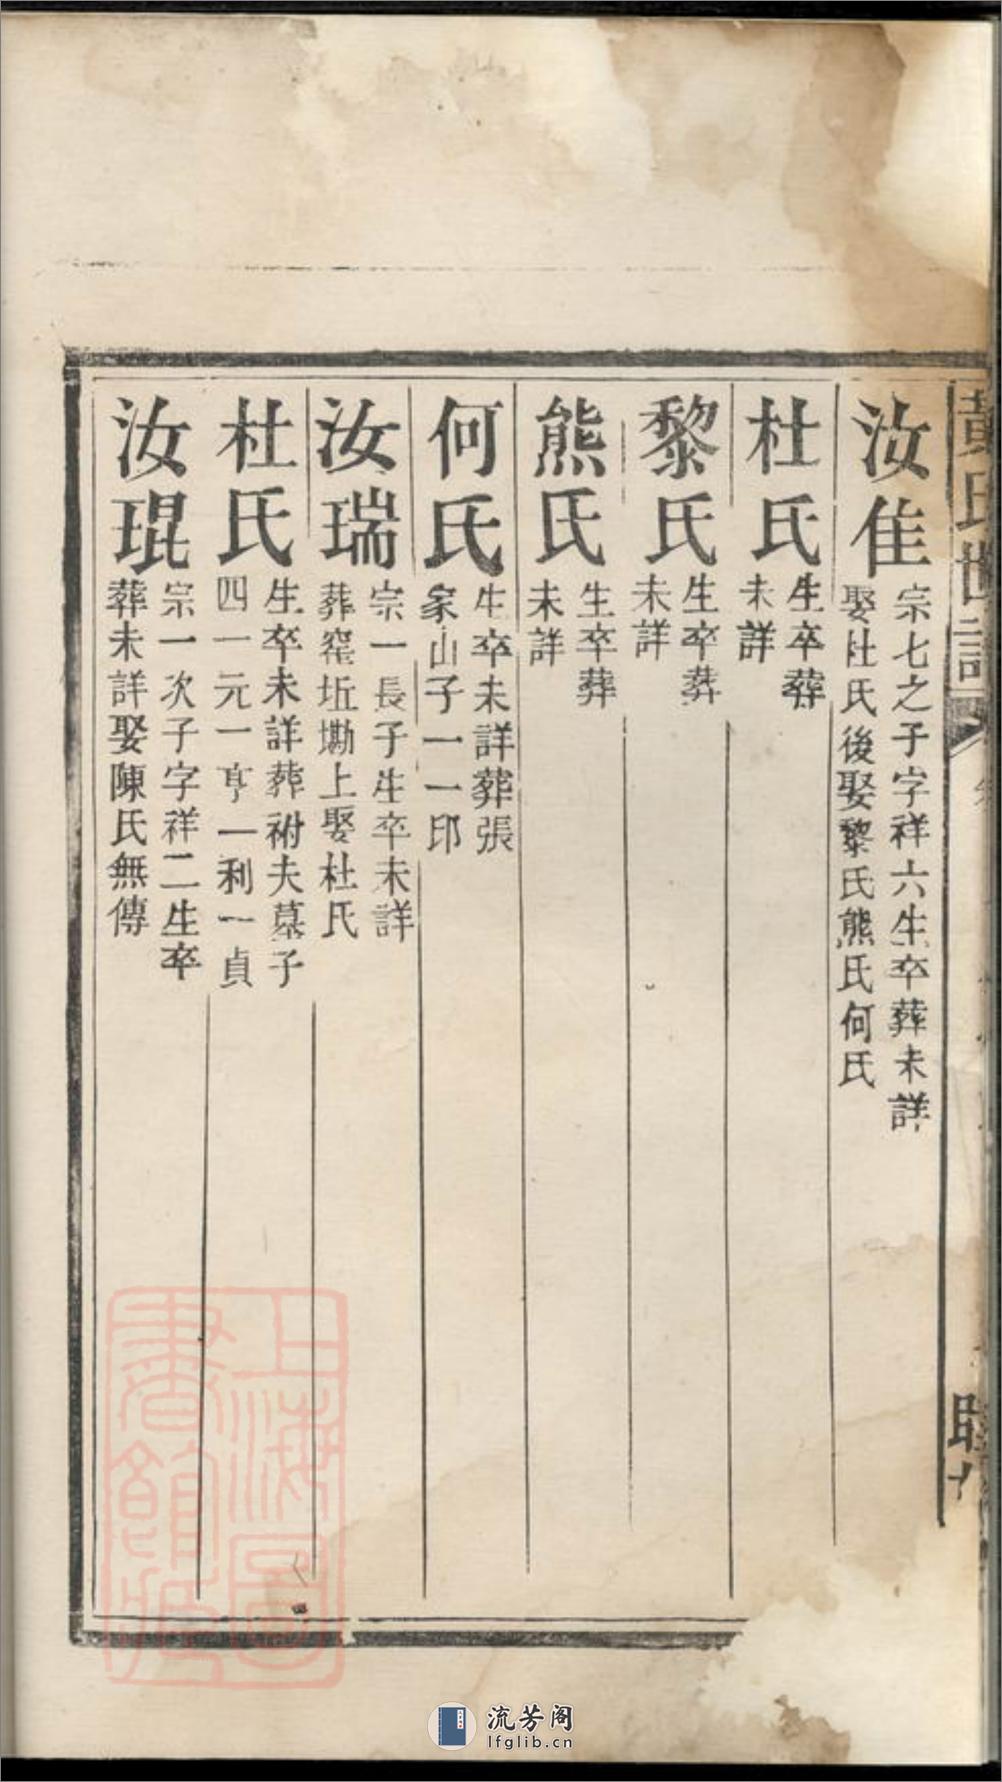 黃氏世譜
汝隹
宗七之子字祥六生卒葬未詳
娶杜氏後娶黎氏熊氏何氏
杜氏
生卒葬
未詳
黎氏
生卒葬
未詳
熊氏
生卒葬
未詳
何氏
生卒未詳葬張
家山子一一邱
汝瑞
宗一長子生卒未詳
葬窰坵塝上娶杜氏
杜氏
生卒未詳葬祔夫墓子
四一元一亨一利一貞
汝琨
宗一次子字祥二生卒
葬未詳娶陳氏無傳
上海圖書館藏
流芳阁
lfglib.cn